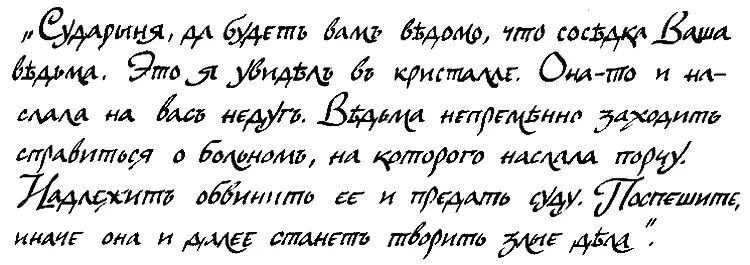 „Сударыня, да будетъ вамъ вѣдомо, что сосѣдка Ваша
вѣдьма. Это я увидѣлъ въ кристалле. Она-то и на-
слала на васъ недугъ. Вѣдьма непремѣнно заходить
справиться о больномъ, на которого наслала порчу.
Надлежитъ обвинить ее и предать суду. Поспешите,
иначе она и далее станетъ творить злые дѣла".